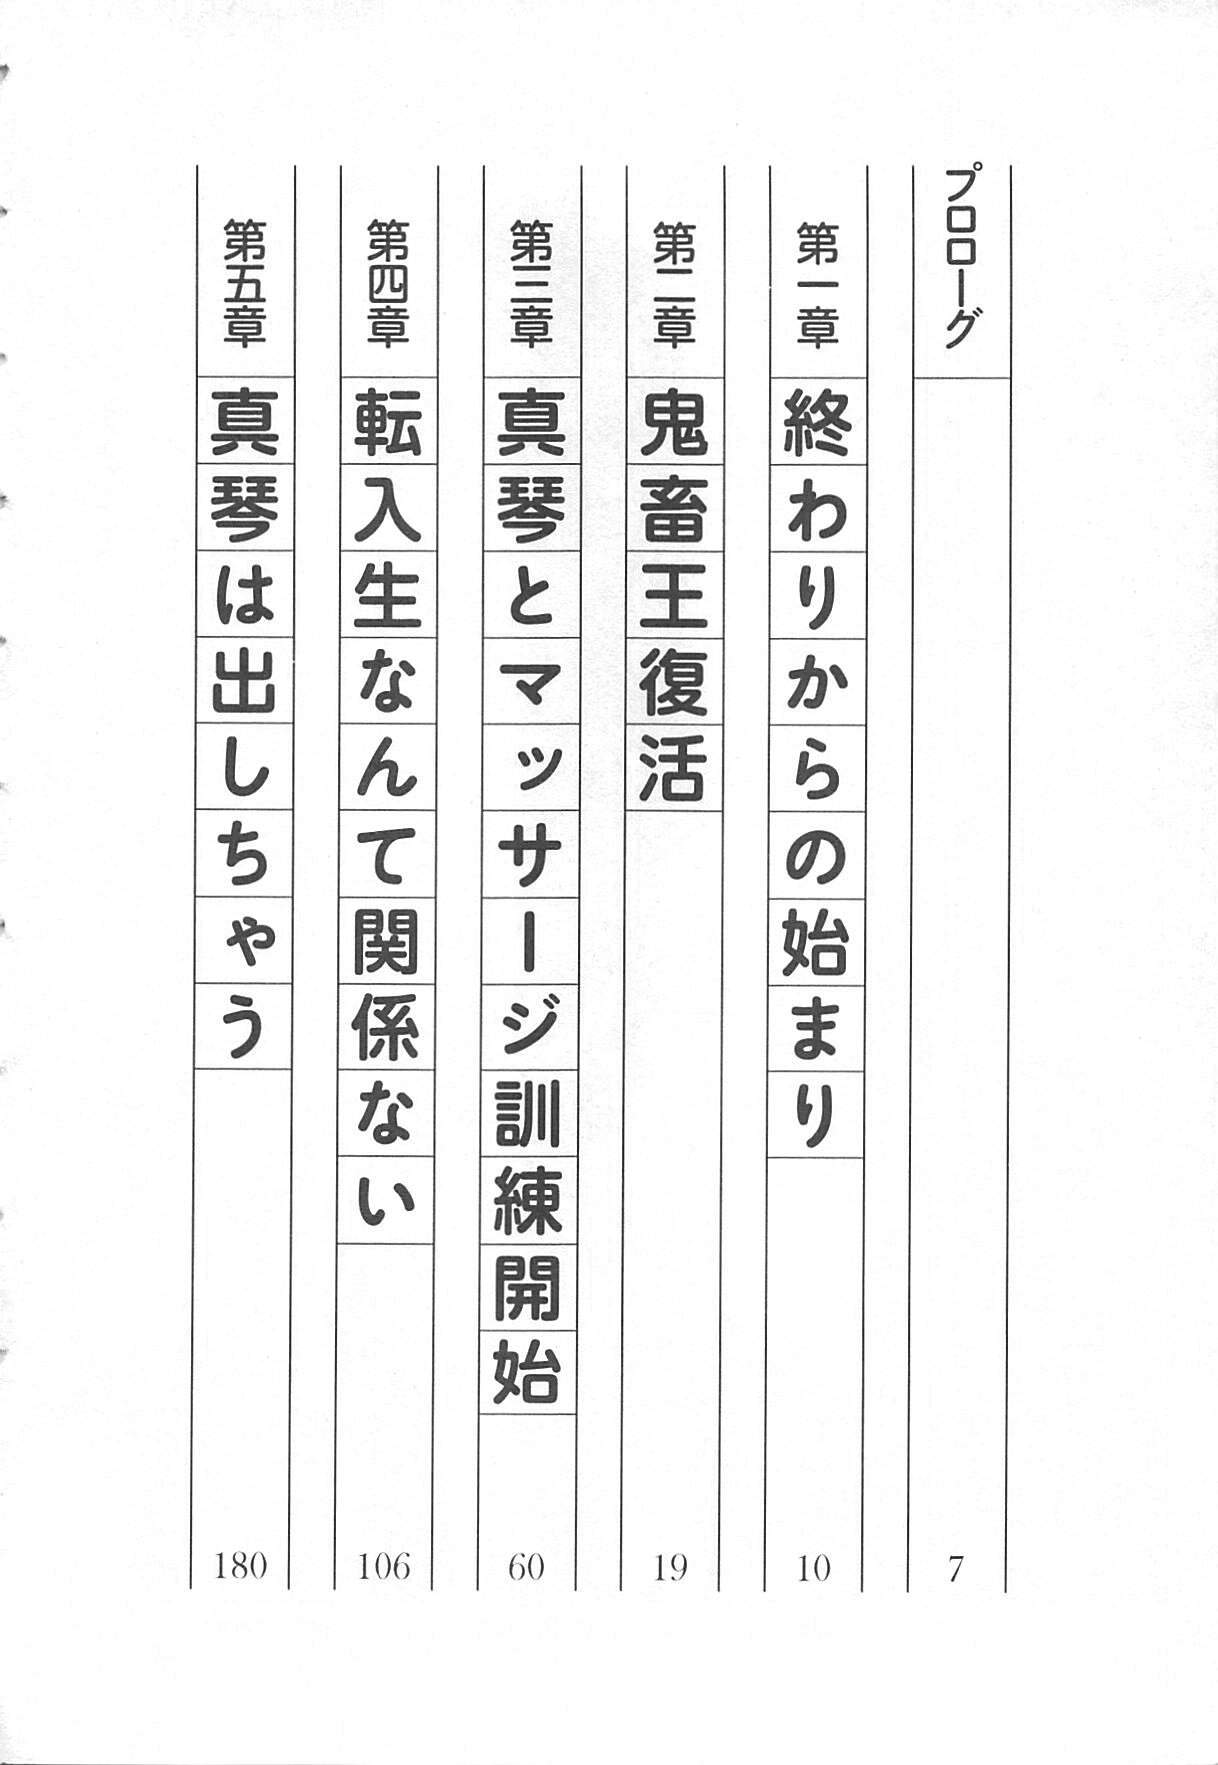 プロローグ 7
第一章 終わりからの始まり 10
第二章 鬼畜王復活 19
第三章 真琴とマッサージ訓練開始 60
第四章 転入生なんて関係ない 106
第五章 真琴は出しちゃう 180